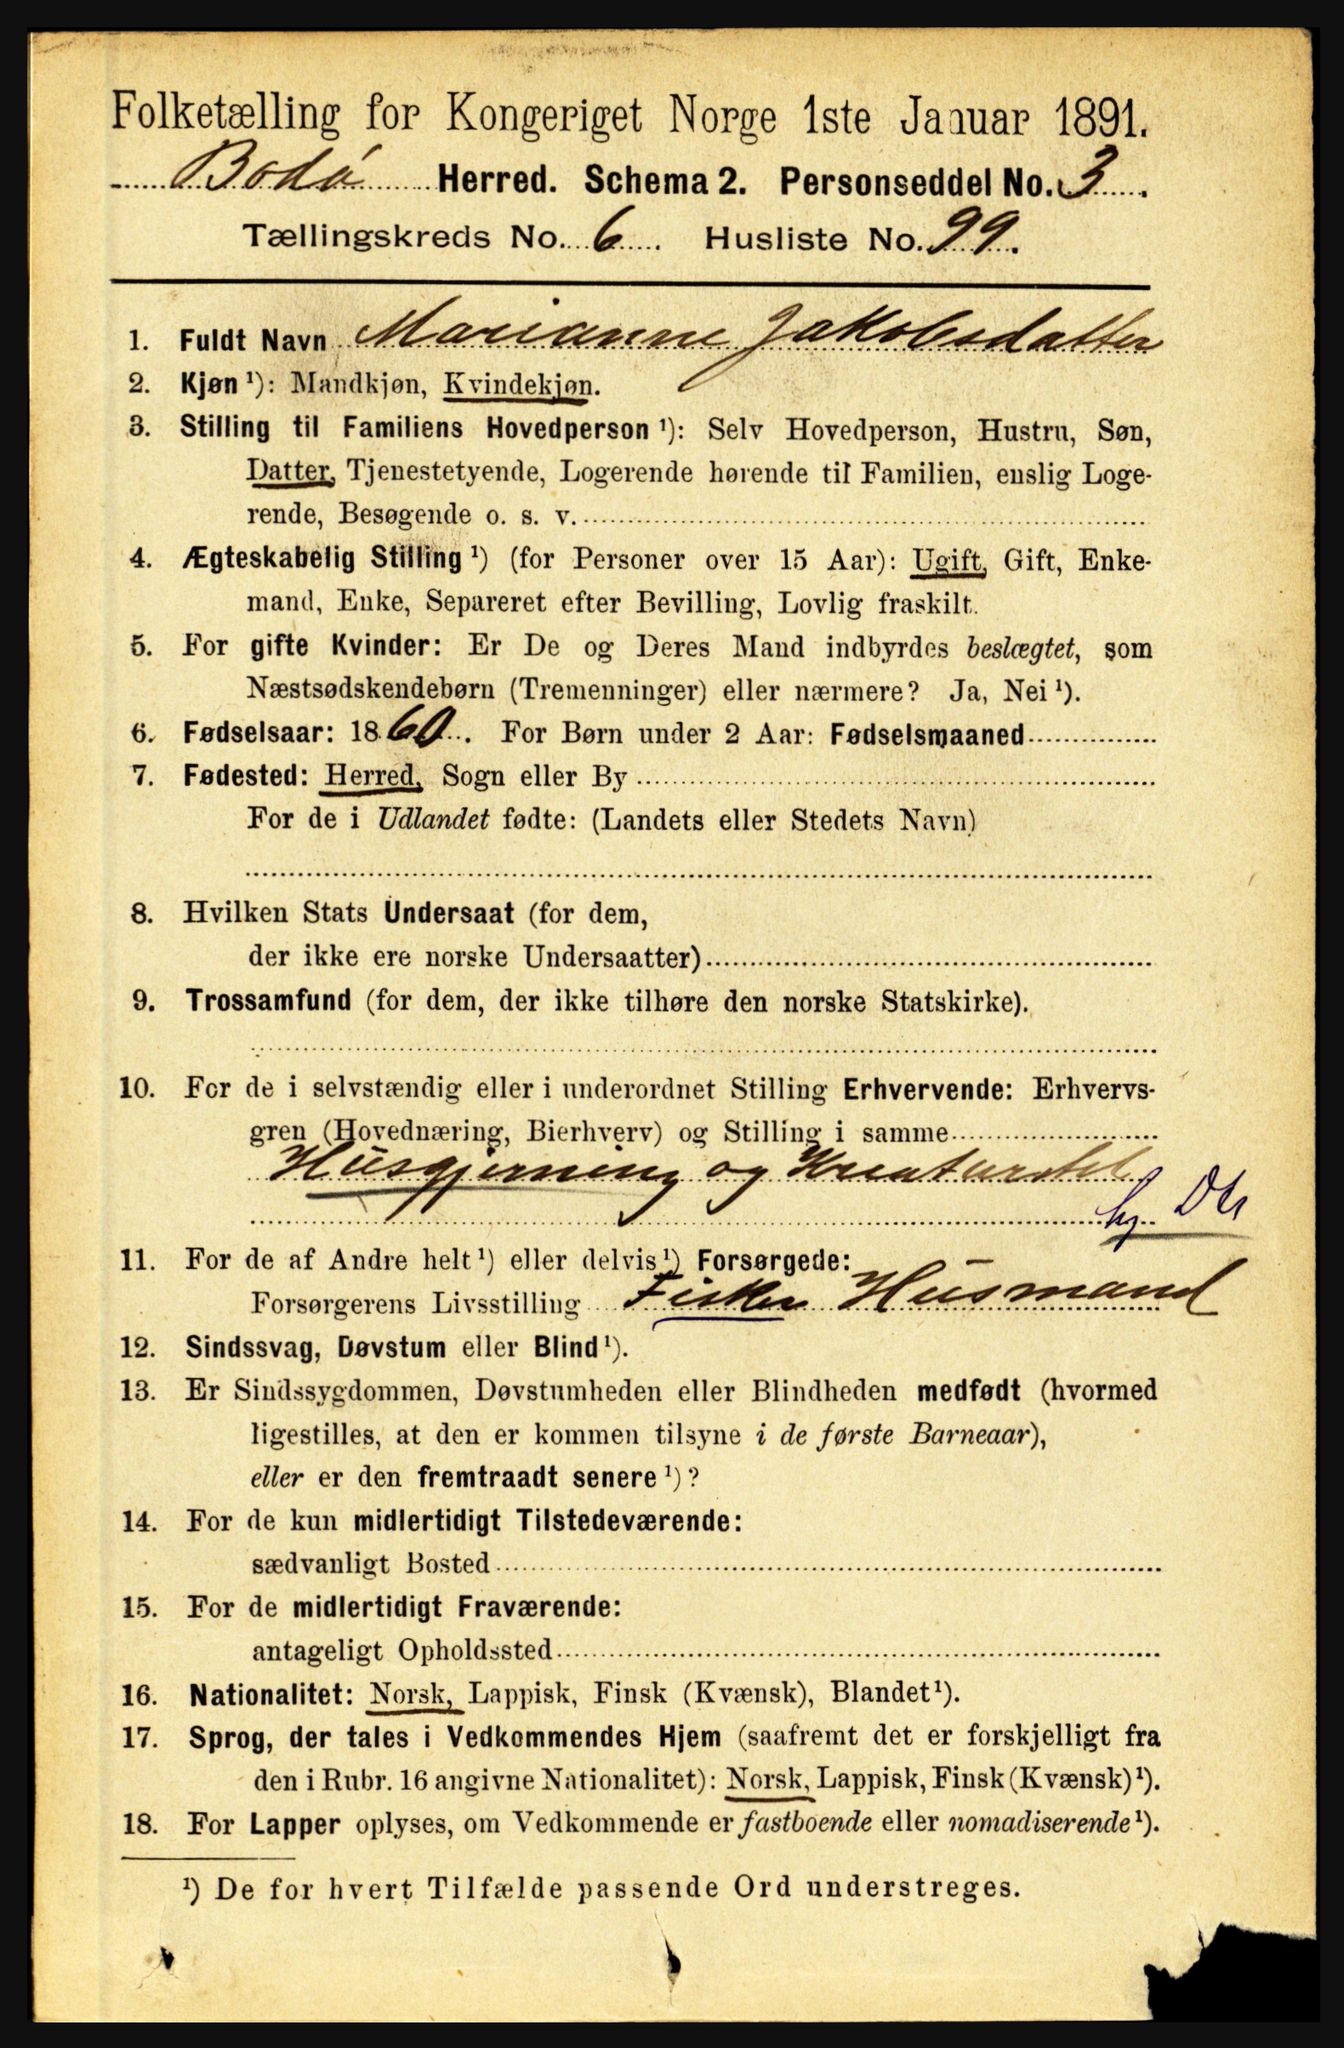 Folketælling for Kongeriget Norge 1ste Januar 1891.
Bodø Herred. Schema 2. Personseddel No. 3.
Tællingskreds No. 6. Husliste No. 99.
1. Fuldt Navn Marianne Jakobsdatter
2. Kjøn ¹): Mandkjøn, Kvindekjøn.
3. Stilling til Familiens Hovedperson ¹): Selv Hovedperson, Hustru, Søn,
Datter, Tjenestetyende, Logerende hørende til Familien, enslig Loge-
rende, Besøgende o. s. v.
4. Ægteskabelig Stilling ¹) (for Personer over 15 Aar): Ugift, Gift, Enke-
mand, Enke, Separeret efter Bevilling, Lovlig fraskilt.
5. For gifte Kvinder: Er De og Deres Mand indbyrdes beslægtet, som
Næstsødskendebørn (Tremenninger) eller nærmere? Ja, Nei ¹).
6. Fødselsaar: 1860. For Børn under 2 Aar: Fødselsmaaned
7. Fødested: Herred, Sogn eller By
For de i Udlandet fødte: (Landets eller Stedets Navn)
8. Hvilken Stats Undersaat (for dem,
der ikke ere norske Undersaatter)
9. Trossamfund (for dem, der ikke tilhøre den norske Statskirke).
10. For de i selvstændig eller i underordnet Stilling Erhvervende: Erhvervs-
gren (Hovednæring, Bierhverv) og Stilling i samme
Husgjerning og Kreaturstel
hj. Dtr
11. For de af Andre helt ¹) eller delvis ¹) Forsørgede:
Forsørgerens Livsstilling Fisker Husmand
12. Sindssvag, Døvstum eller Blind ¹).
13. Er Sindssygdommen, Døvstumheden eller Blindheden medfødt (hvormed
ligestilles, at den er kommen tilsyne i de første Barneaar),
eller er den fremtraadt senere ¹)?
14. For de kun midlertidigt Tilstedeværende:
sædvanligt Bosted
15. For de midlertidigt Fraværende:
antageligt Opholdssted
16. Nationalitet: Norsk, Lappisk, Finsk (Kvænsk), Blandet ¹).
17. Sprog, der tales i Vedkommendes Hjem (saafremt det er forskjelligt fra
den i Rubr. 16 angivne Nationalitet): Norsk, Lappisk, Finsk (Kvænsk) ¹).
18. For Lapper oplyses, om Vedkommende er fastboende eller nomadiserende ¹).
¹) De for hvert Tilfælde passende Ord understreges.